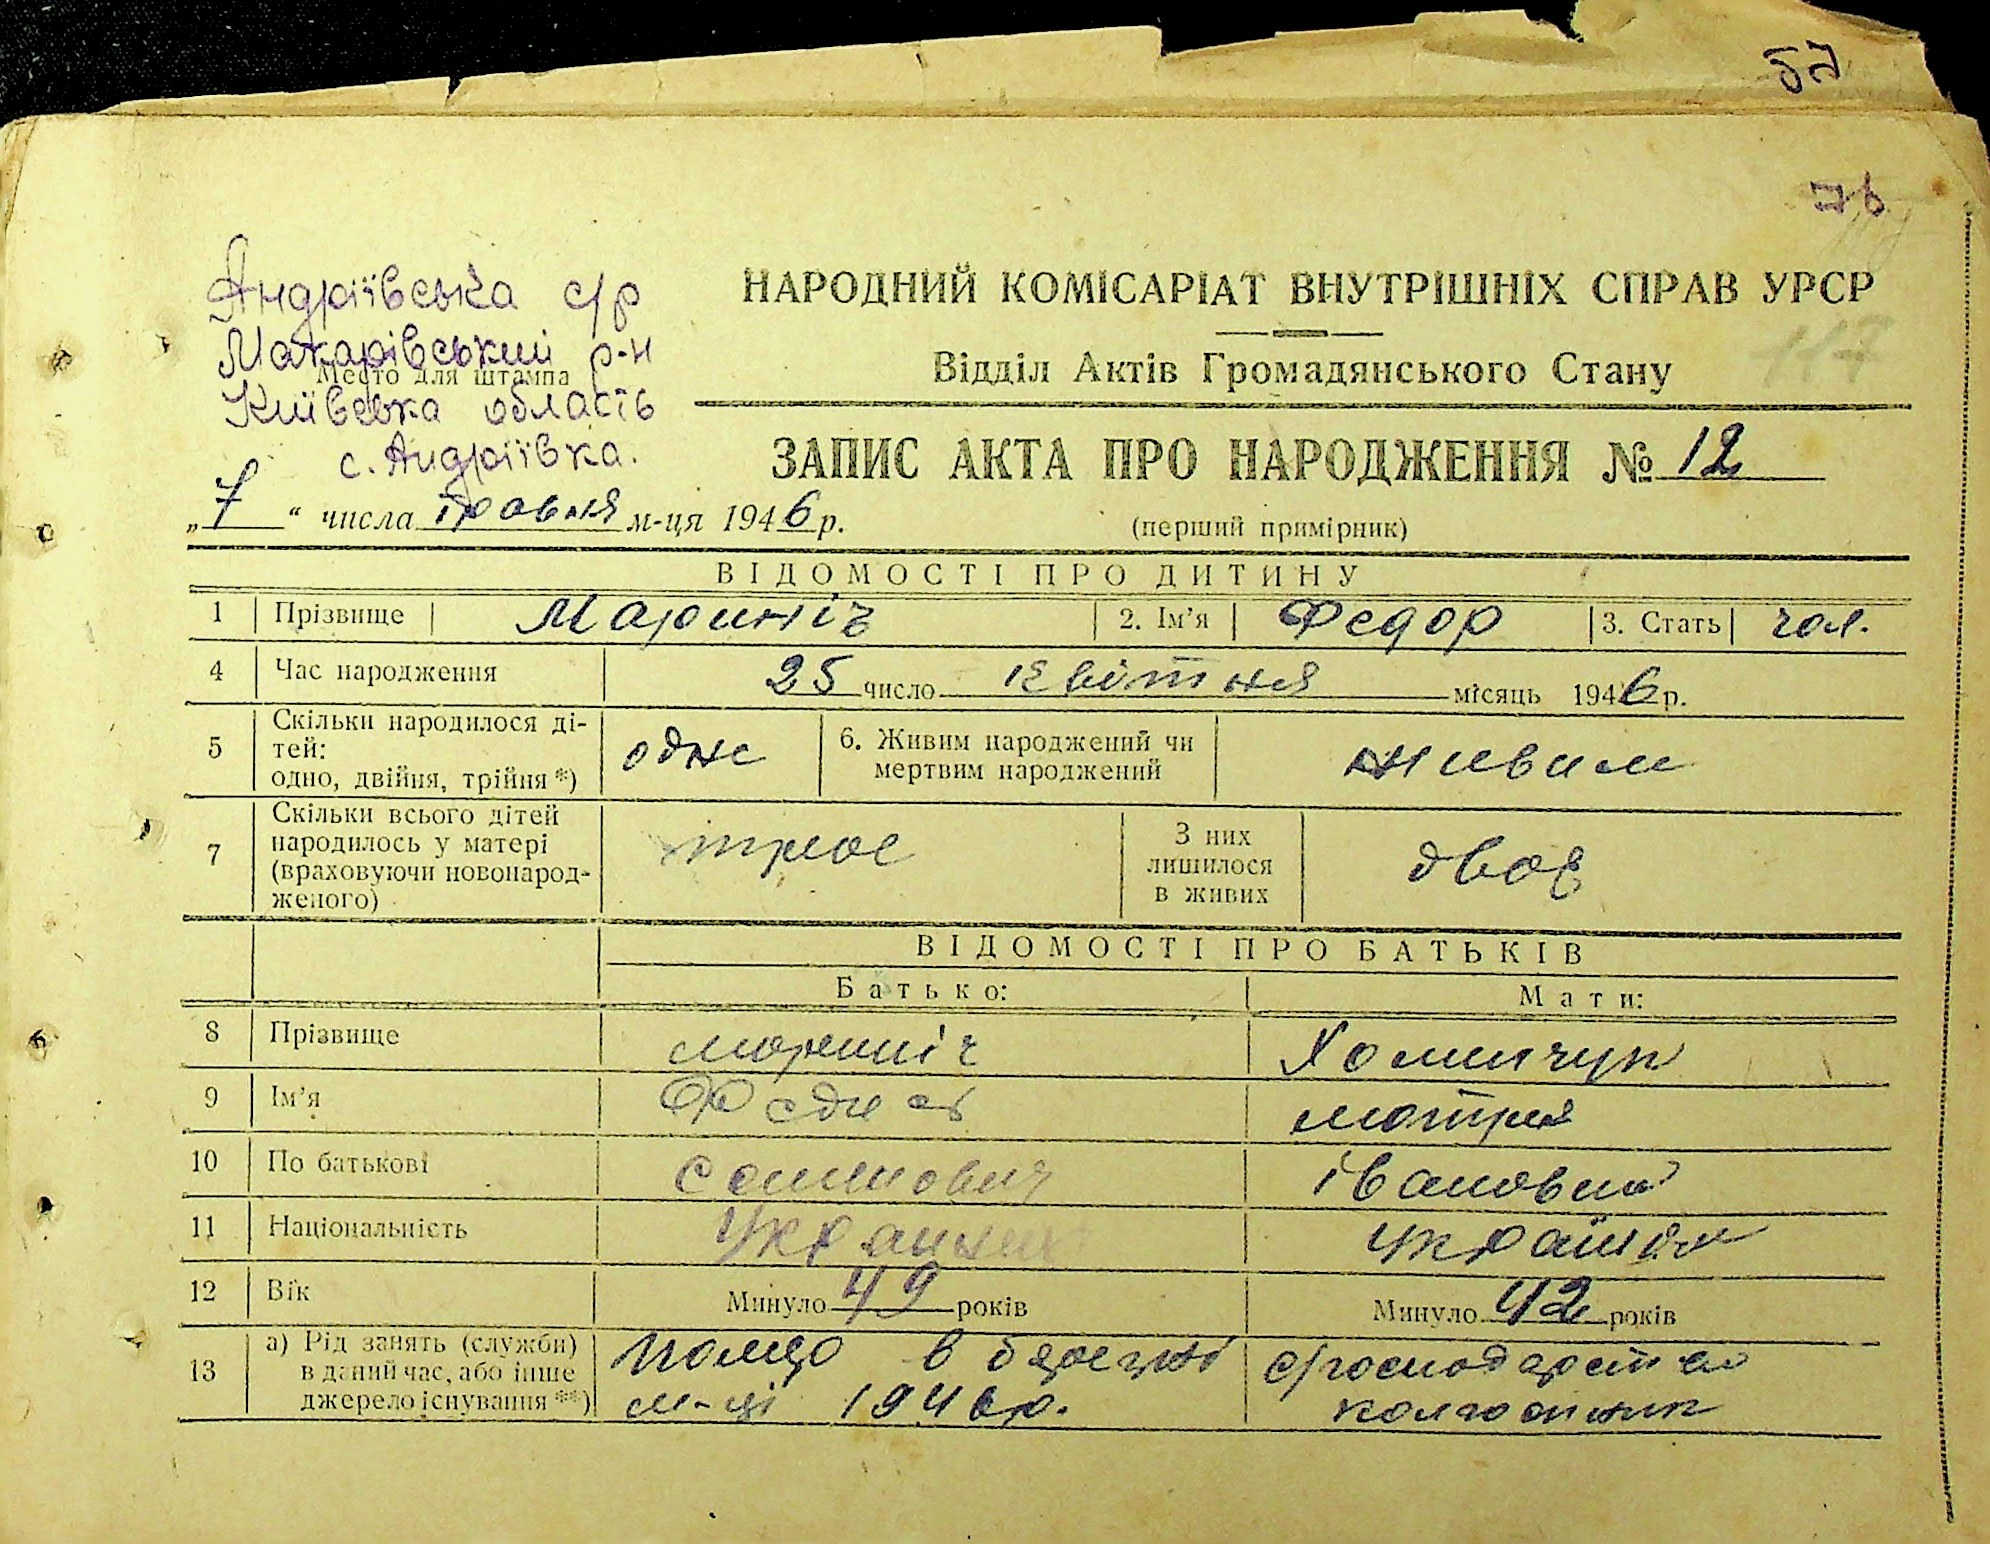 57
76
117
Андріївська с/р
Макарівський р-н
Место для штампа
Київська область
с. Андріївка.
НАРОДНИЙ КОМІСАРІАТ ВНУТРІШНІХ СПРАВ УРСР
Відділ Актів Громадянського Стану
ЗАПИС АКТА ПРО НАРОДЖЕННЯ № 12
„7“ числа травня м-ця 1946 р.
(перший примірник)
ВІДОМОСТІ ПРО ДИТИНУ
1 Прізвище Мариніч 2. Ім’я Федор 3. Стать чол.
4 Час народження 25 число квітня місяць 1946 р.
5 Скільки народилося ді-
тей:
одно, двійня, трійня *) одне
6. Живим народжений чи
мертвим народжений живим
7 Скільки всього дітей
народилось у матері
(враховуючи новонарод-
женого) троє
З них
лишилося
в живих двоє
ВІДОМОСТІ ПРО БАТЬКІВ
Батько: Мати:
8 Прізвище Мариніч Хомичук
9 Ім’я мотря
10 По батькові івановна
11 Національність Українка
12 Вік Минуло 49 років Минуло 42 років
13 а) Рід занять (служби)
в даний час, або інше
джерело існування **)
в
м-ці 1946 р.
с/господарство
колгоспник